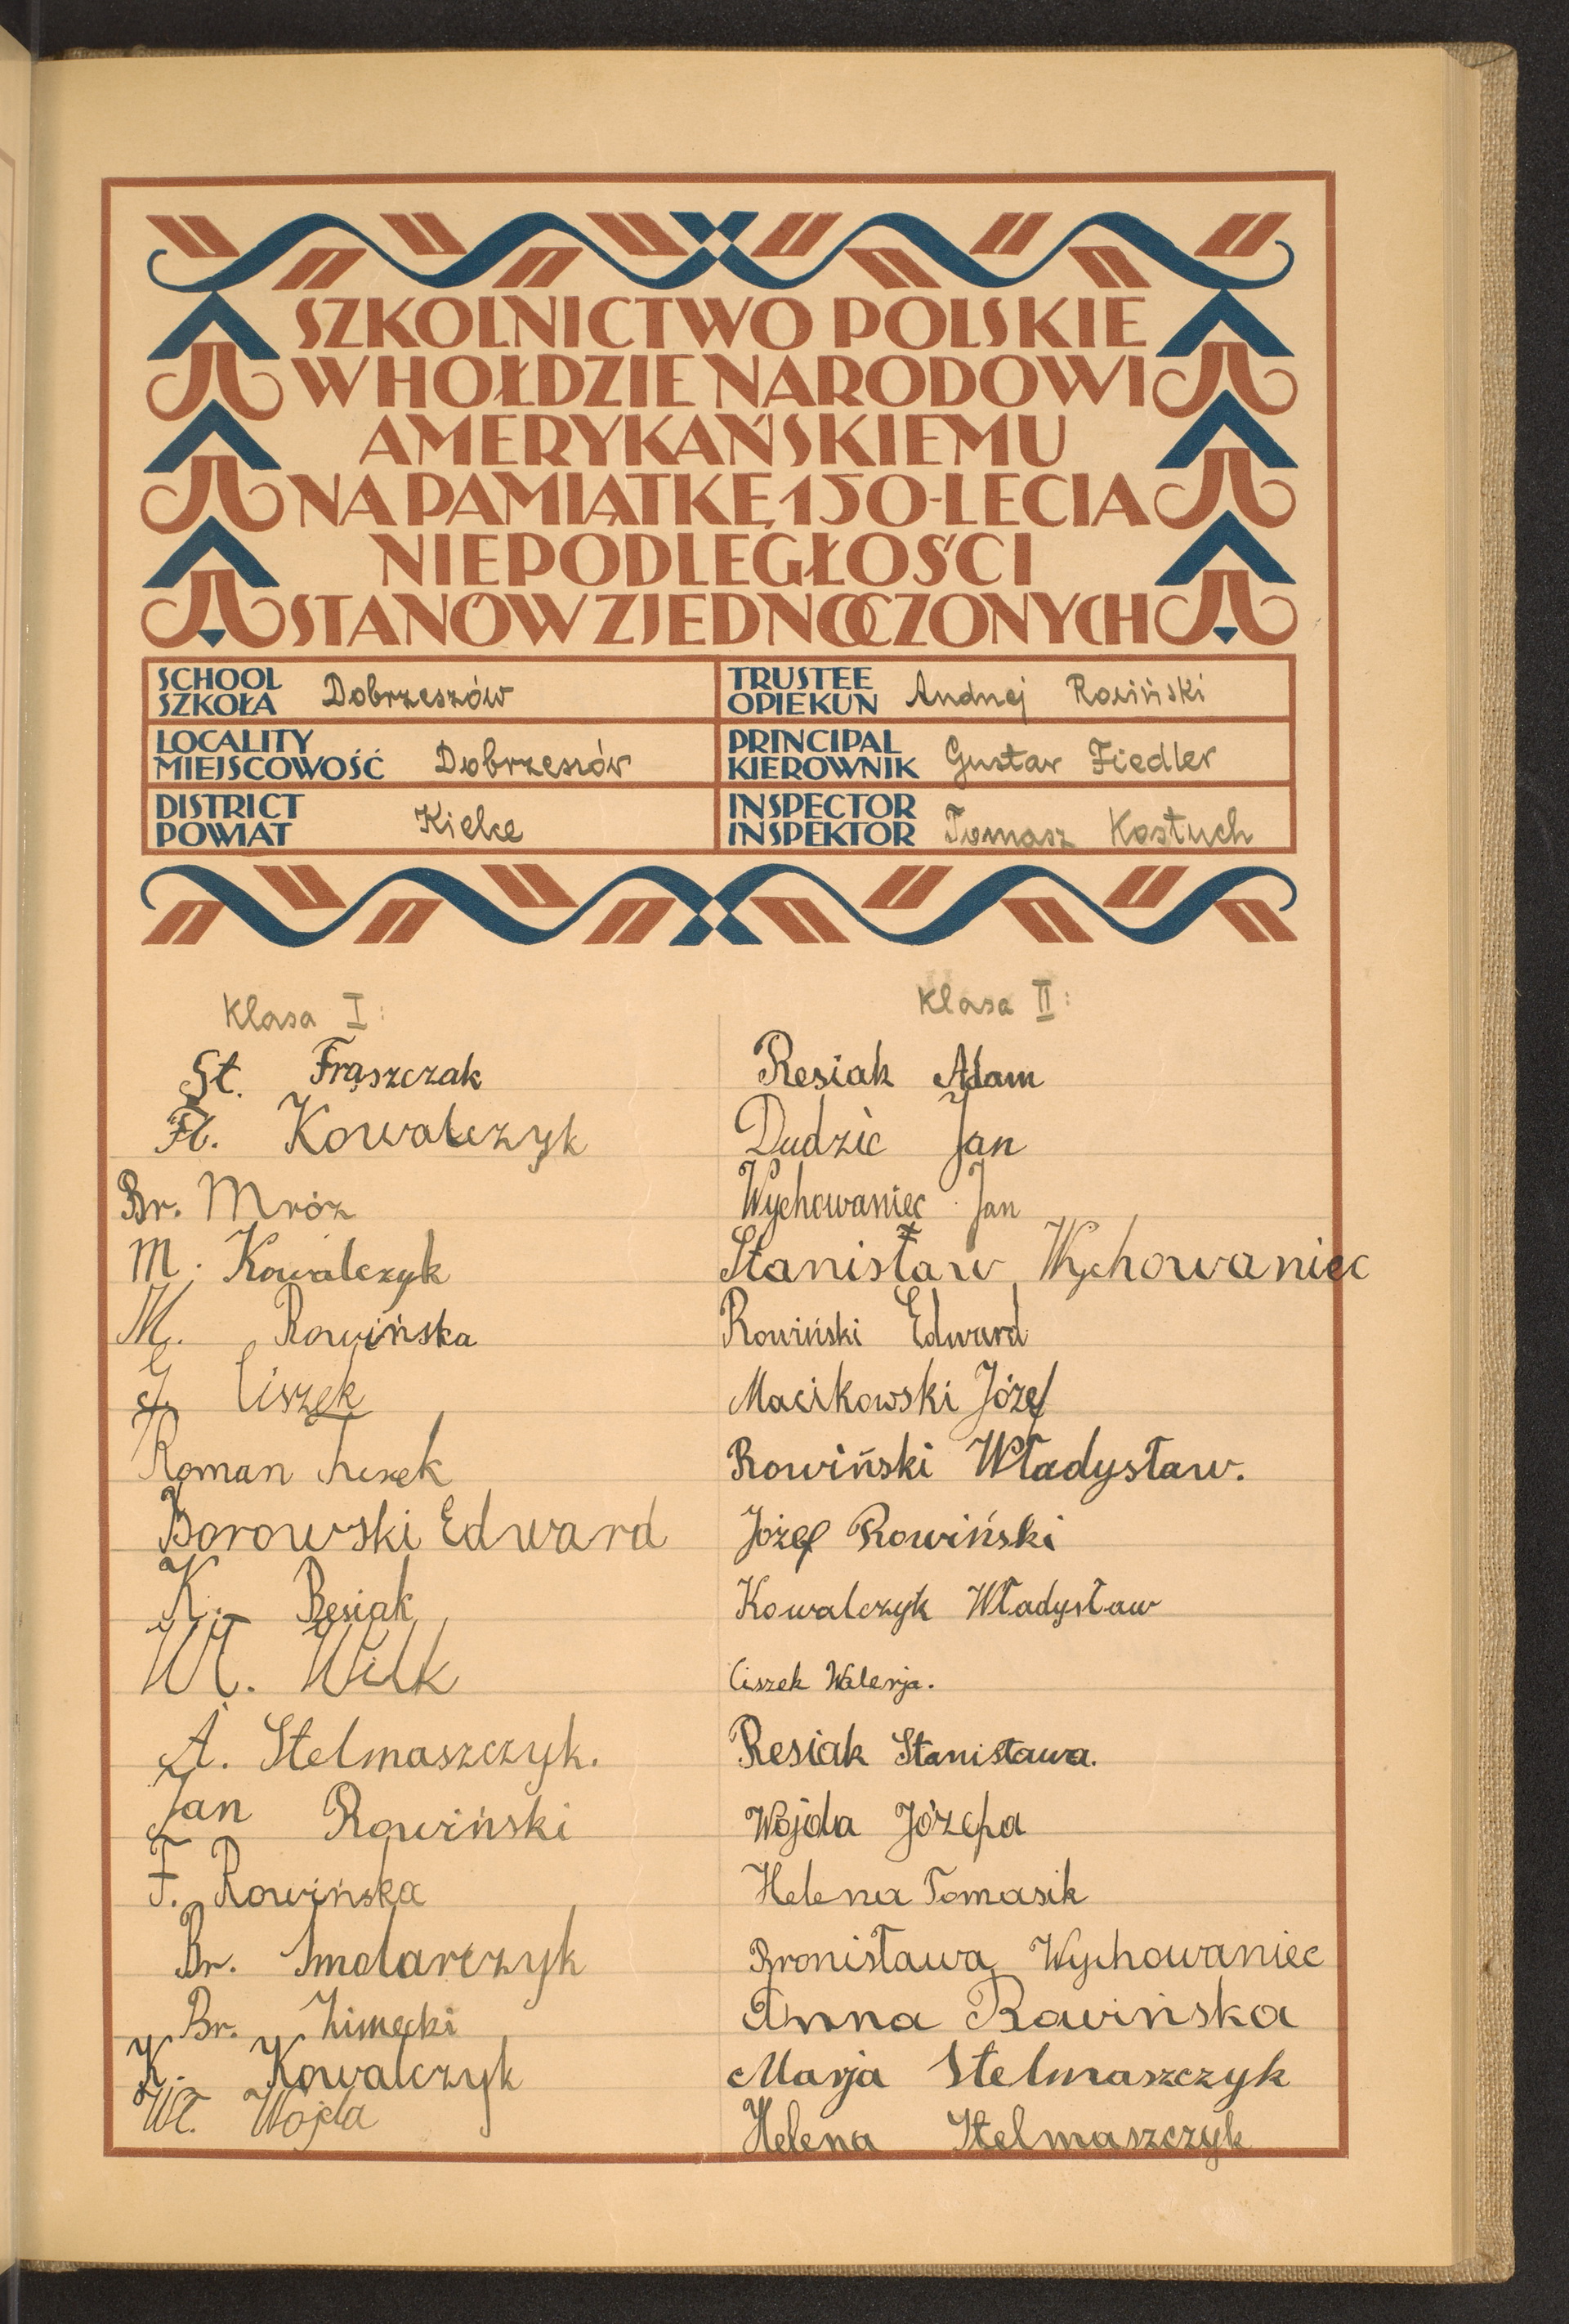 SZKOLNICTWO POLSKIE
W HOŁDZIE NARODOWI
AMERYKAŃSKIEMU
NA PAMIĄTKĘ 150-LECIA
NIEPODLEGŁOŚCI
STANÓW ZJEDNOCZONYCH
SCHOOL
SZKOŁA Dobrzeszów
LOCALITY
MIEJSCOWOŚĆ Dobrzeszów
DISTRICT
POWIAT Kielce
TRUSTEE
OPIEKUN Andrzej Rowiński
PRINCIPAL
KIEROWNIK Gustav Fiedler
INSPECTOR
INSPEKTOR Tomasz Kostuch
Klasa I:
St. Frąszczak
Fl. Kowalczyk
Br. Mróz
M. Kowalczyk
M. Rowińska
Ciszek
Roman
Borowski Edward
K. Resiak
Wł. Wilk
A. Stelmaszczyk.
Jan Rowiński
F. Rowińska
Br. Smolarczyk
Br. Zimecki
K. Kowalczyk
Wł. Wojda
Klasa II:
Resiak Adam
Dudzic Jan
Wychowaniec Jan
Stanisław Wychowaniec
Rowiński Edward
Macikowski Józef
Rowiński Władysław.
Józef Rowiński
Kowalczyk Władysław
Ciszek Walerja.
Resiak Stanisława.
Wojda Józefa
Helena Tomasik
Bronisława Wychowaniec
Anna Rowińska
Marja Stelmaszczyk
Helena Stelmaszczyk